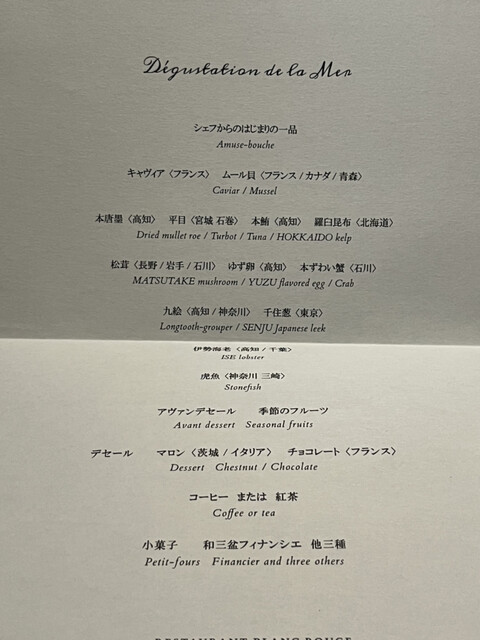 Dégustation de la Mer
シェフからのはじまりの一品
Amuse-bouche
キャヴィア〈フランス〉 ムール貝〈フランス/カナダ/青森〉
Caviar / Mussel
本唐墨〈高知〉 平目〈宮城 石巻〉 本鮪〈高知〉 羅臼昆布〈北海道〉
Dried mullet roe / Turbot / Tuna / HOKKAIDO kelp
松茸〈長野/岩手/石川〉 ゆず卵〈高知〉 本ずわい蟹〈石川〉
MATSUTAKE mushroom / YUZU flavored egg / Crab
九絵〈高知/神奈川〉 千住葱〈東京〉
Longtooth-grouper / SENJU Japanese leek
伊勢海老〈高知/千葉〉
ISE lobster
虎魚〈神奈川 三崎〉
Stonefish
アヴァンデセール 季節のフルーツ
Avant dessert Seasonal fruits
デセール マロン〈茨城/イタリア〉 チョコレート〈フランス〉
Dessert Chestnut / Chocolate
コーヒー または 紅茶
Coffee or tea
小菓子 和三盆フィナンシエ 他三種
Petit-fours Financier and three others
RESTAURANT BLANC ROUGE